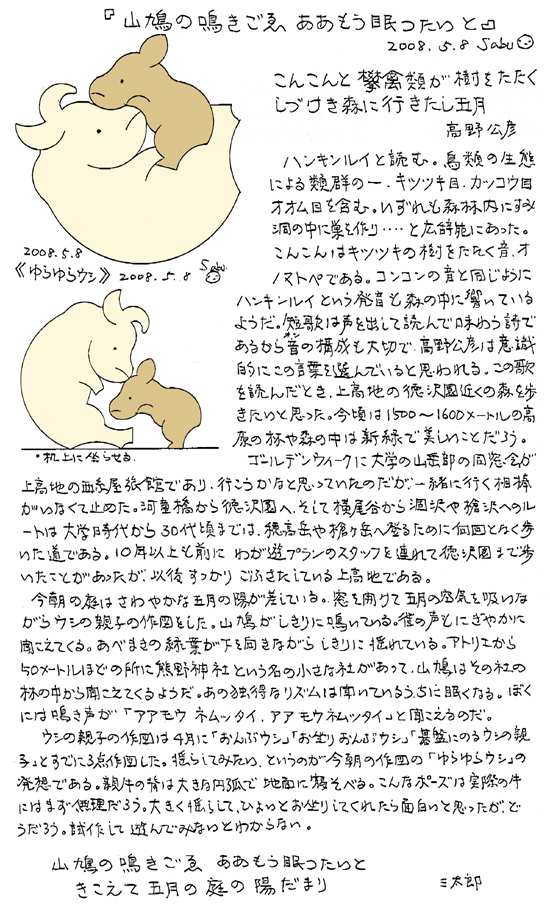 『山鳩の鳴きごゑ ああもう眠つたいと』
2008.5.8 Sabu
こんこんと 攀禽類が樹をたたく
しづけき森に行きたし五月
高野公彦
ハンキンルイと読む。鳥類の生態
による類群の一、キツツキ目、カッコウ目
オオム目を含む。いずれも森林内にすみ
洞の中に巣を作り‥‥と広辞苑にあった。
こんこんはキツツキの樹をたたく音、オ
ノマトペである。コンコンの音と同じように
ハンキンルイという発音も森の中に響いている
ようだ。短歌は声を出して読んで味わう詩で
あるから音(オン)の構成も大切で、高野公彦は意識
的にこの言葉を選んでいると思われる。この歌
を読んだとき、上高地の徳沢園近くの森を歩
きたいと思った。今頃は1500〜1600メートルの高
原の林や森の中は新緑で美しいことだろう。
2008.5.8
《ゆらゆらウシ》 2008.5.8 Sabu
・机上に坐らせる.
ゴールデンウィークに大学の山岳部の同窓会が
上高地の西糸屋旅館であり、行こうかなと思っていたのだが、一緒に行く相棒
がいなくて止めた。河童橋から徳沢園へ、そして横尾谷から涸沢や槍沢へのル
ートは大学時代から30代頃までは、穂高岳や槍ヶ岳へ登るために何回となく歩
いた道である。10年以上も前に わが遊プランのスタッフを連れて徳沢園まで歩
いたことがあったが、以後すっかりごぶさたしている上高地である。
今朝の庭はさわやかな五月の陽が差している。窓を開けて五月の空気を吸いな
がらウシの親子の作図をした。山鳩がしきりに鳴いている。雀の声もにぎやかに
聞こえてくる。あべまきの緑葉が下を向きながらしきりに揺れている。アトリエから
50メートルほどの所に熊野神社という名の小さな社があって、山鳩はその社の
林の中から聞こえてくるようだ。あの独得なリズムは聞いているうちに眠くなる。ぼく
には鳴き声が「アアモウ ネムッタイ、アアモウネムッタイ」と聞こえるのだ。
ウシの親子の作図は4月に「おんぶウシ」「お坐りおんぶウシ」「碁盤にのるウシの親
子」とすでに3点作図した。揺らしてみたい、というのが今朝の作図の「ゆらゆらウシ」の
発想である。親牛の背は大きな円弧で地面に寝そべる。こんなポーズは実際の牛
にはまず無理だろう。大きく揺らして、ひょいとお坐りしてくれたら面白いと思ったが、ど
うだろう。試作して遊んでみないとわからない。
山鳩の鳴きごゑ ああもう眠つたいと
きこえて五月の庭の陽だまり
三太郎